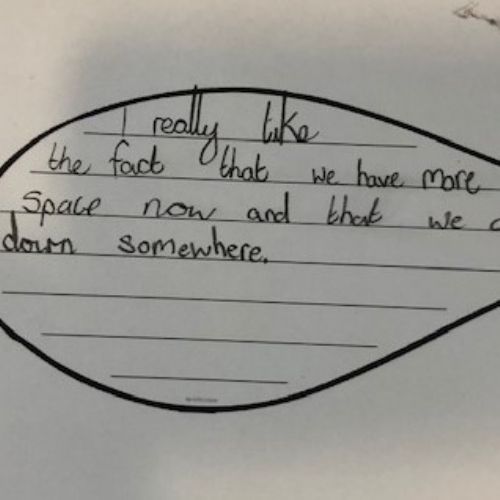 I really like
the fact that we have more
space now and that we
down somewhere.